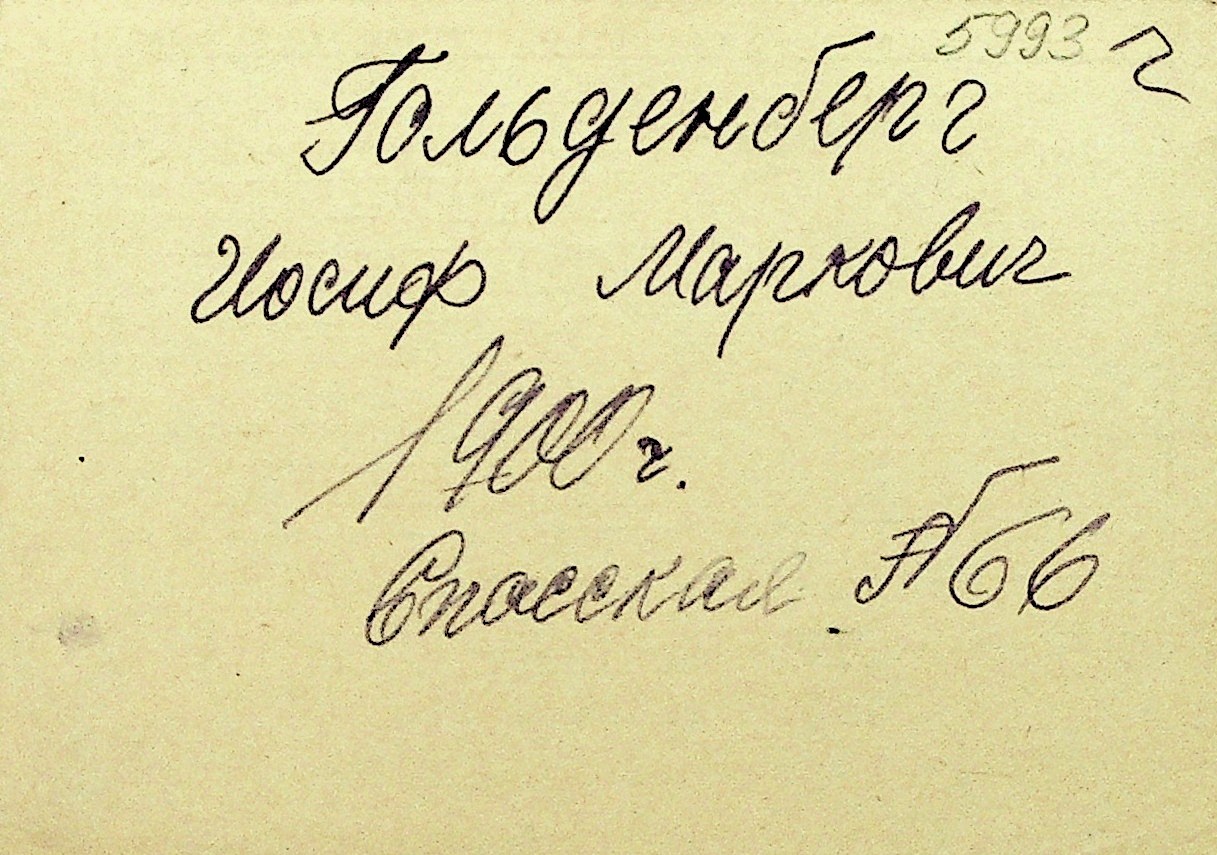 5993 г
Гольденберг
Иосиф Маркович
1900 г.
Спасская № 66